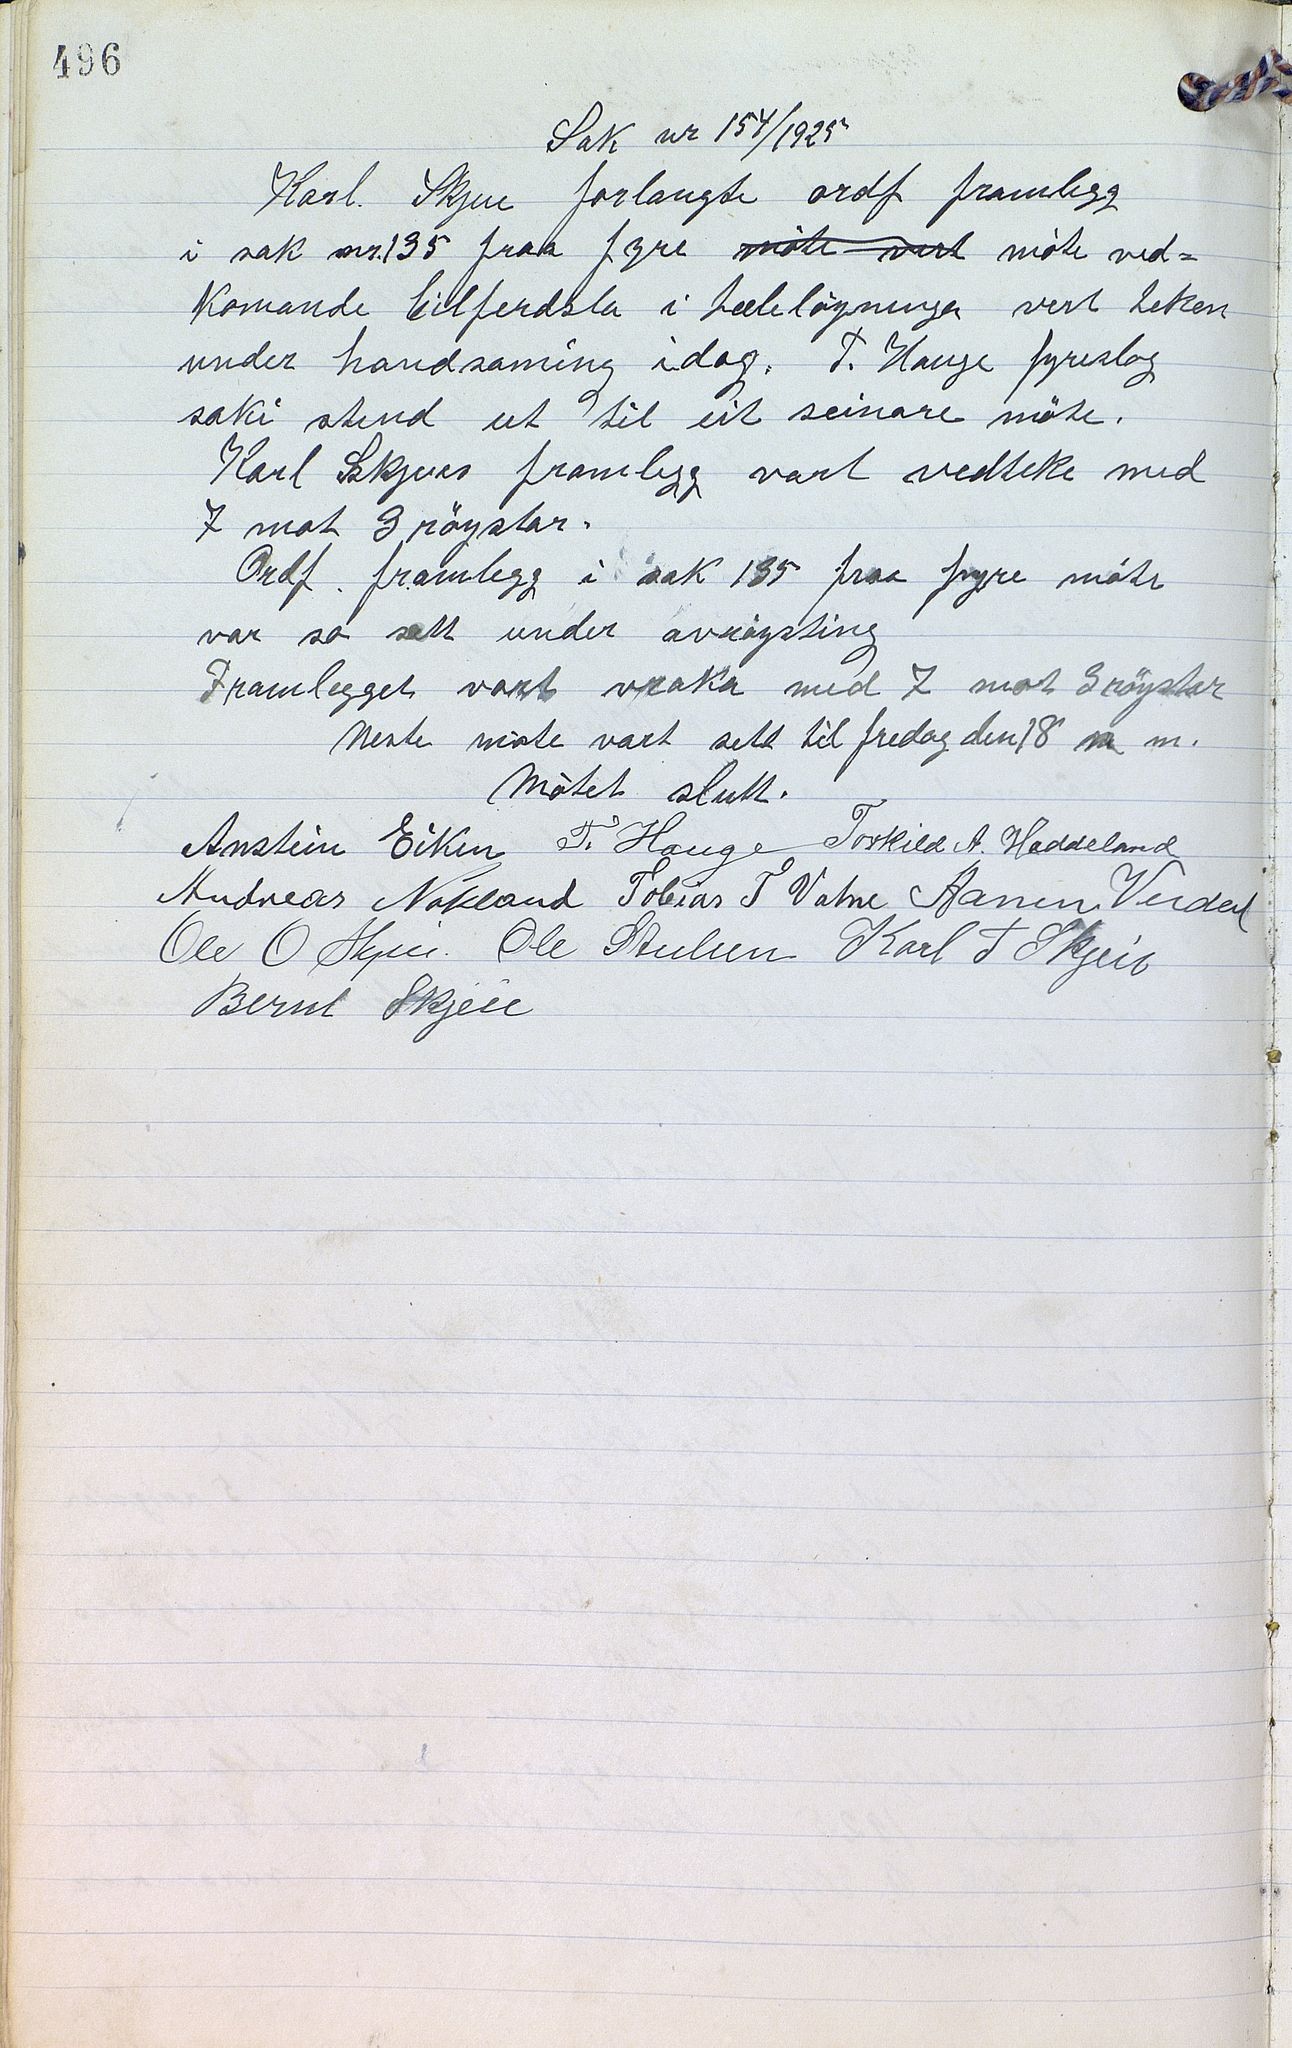 496
Sak nr 154/1925
Karl. Skjeie forlangte ordf framlegg
i sak nr. 135 fraa fyre möte vert möte ved=
komande Eilferdsla i tælelöysninga vert teken
under handsaming idag. T. Hauge fyreslog
saki stend ut til eit seinare möte.
Karl Skjeies framlegg vart vedteke med
7 mot 3 röystar.
Ordf. framlegg i sak 135 fraa fyre möte
var so sett under avröysting
Framlegget vart vraka med 7 mot 3 röystar
Neste möte vart sett til fredag den 18 m.
Mötet slutt.
Anstein Eiken T. Hauge Torkild A. Haddeland
Andreas Nökland Tobias T Vatne Aanen Verdal
Ole O Skjeie. Ole Stulien Karl T Skjeie
Bernt Skjeie